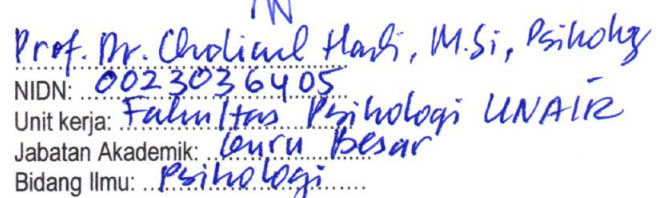 Prof. Dr. Cholichul Hadi, M.Si, Psikolog
NIDN: 0023036405
Unit kerja: Fakultas Psikologi UNAIR
Jabatan Akademik: Guru Besar
Bidang Ilmu: Psikologi